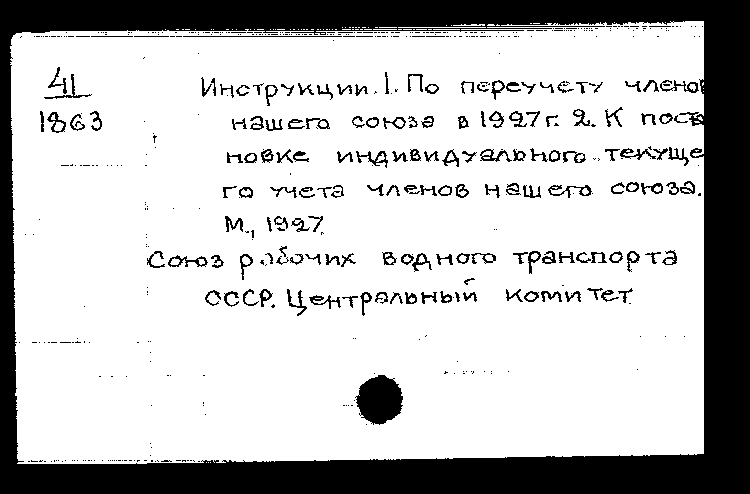 41
1863
Инструкции. 1. По переучету членов
нашего союза в 1927 г. 2. К поста
новке индивидуального текуще
го учета членов нашего союза.
М., 1927
Союз рабочих водного транспорта
СССР. Центральный комитет